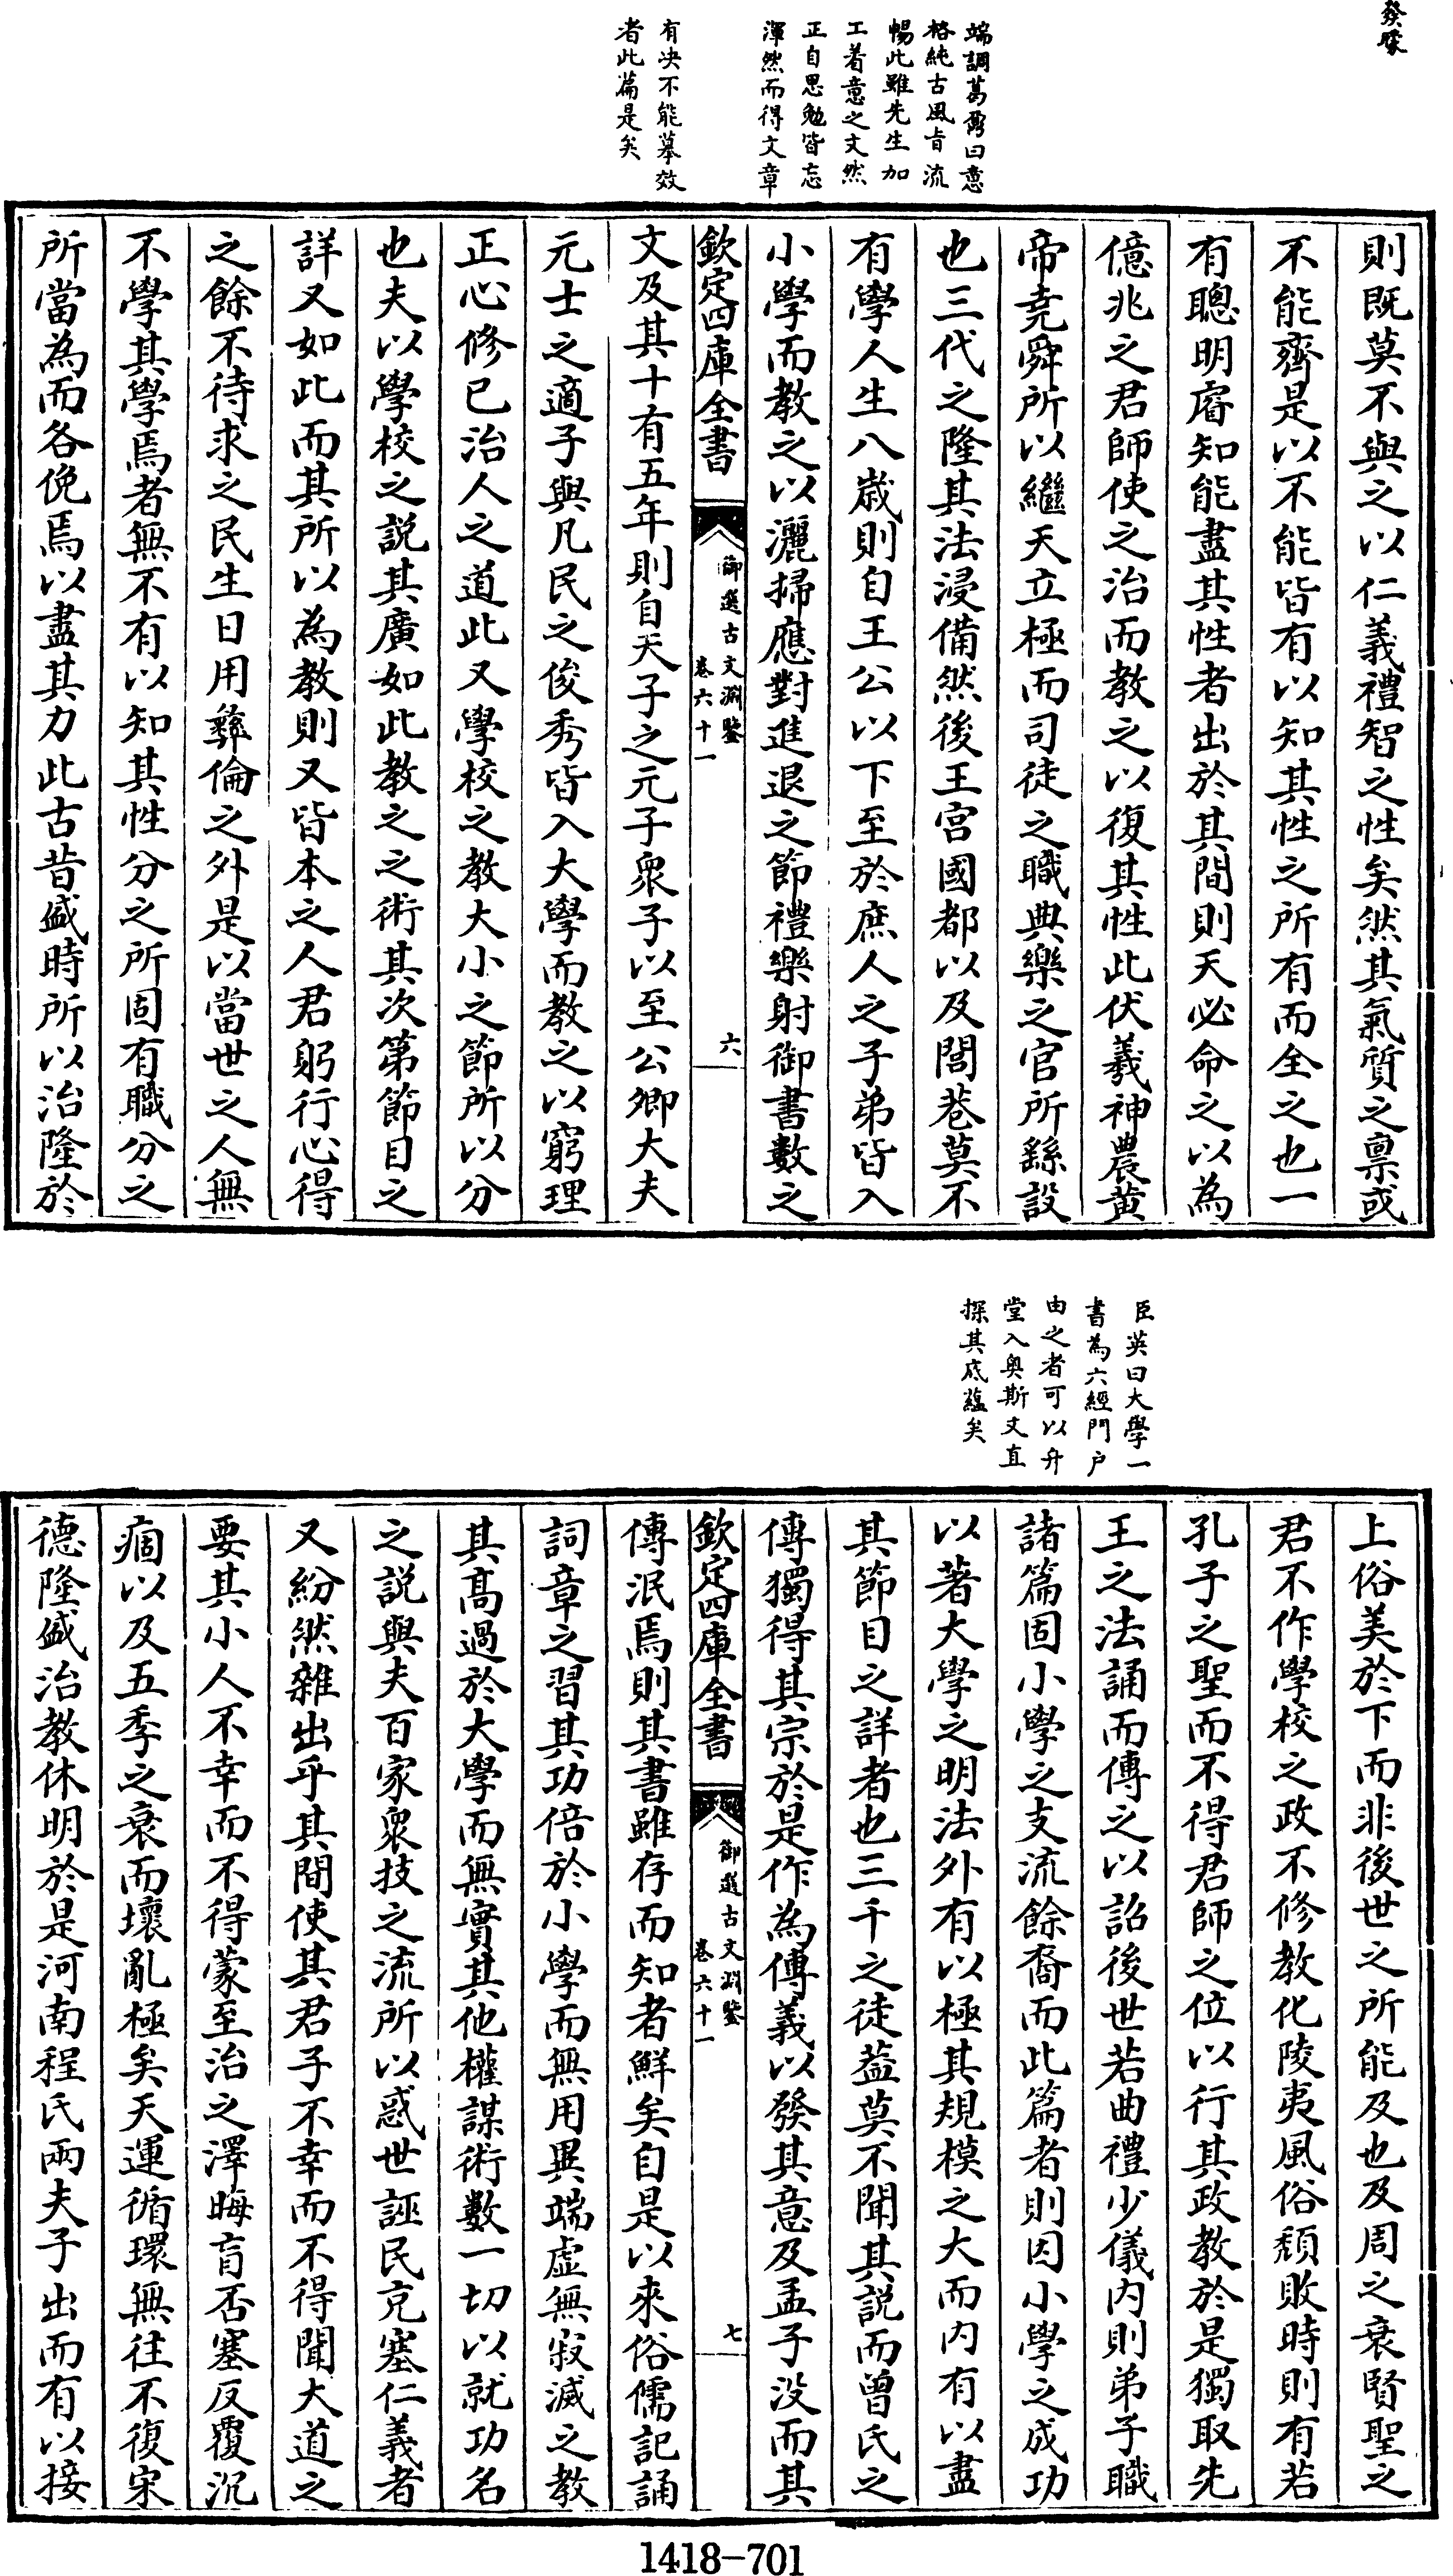 發縢
端調葛鼐曰意
格純古風旨流
暢此雖先生加
工着意之文然
正自思勉皆忘
渾然而得文章
有决不能摹效
者此篇是矣
則既莫不與之以仁義禮智之性矣然其氣質之禀或
不能齊是以不能皆有以知其性之所有而全之也一
有聰明睿知能盡其性者出於其間則天必命之以為
億兆之君師使之治而教之以復其性此伏羲神農黄
帝堯舜所以繼天立極而司徒之職典樂之官所繇設
也三代之隆其法浸備然後王宫國都以及閭巷莫不
有學人生八歲則自王公以下至於庶人之子弟皆入
小學而教之以灑掃應對進退之節禮樂射御書數之
欽定四庫全書
御選古文淵鑒
卷六十一
六
文及其十有五年則自天子之元子衆子以至公卿大夫
元士之適子與凡民之俊秀皆入大學而教之以窮理
正心修已治人之道此又學校之教大小之節所以分
也夫以學校之說其廣如此教之之術其次第節目之
詳又如此而其所以為教則又皆本之人君躬行心得
之餘不待求之民生日用彝倫之外是以當世之人無
不學其學焉者無不有以知其性分之所固有職分之
所當為而各俛焉以盡其力此古昔盛時所以治隆於
臣英曰大學一
書為六經門戶
由之者可以升
堂入奥斯文直
探其底蘊矣
上俗美於下而非後世之所能及也及周之衰賢聖之
君不作學校之政不修教化陵夷風俗頹敗時則有若
孔子之聖而不得君師之位以行其政教於是獨取先
王之法誦而傳之以詔後世若曲禮少儀内則弟子職
諸篇固小學之支流餘裔而此篇者則因小學之成功
以著大學之明法外有以極其規模之大而内有以盡
其節目之詳者也三千之徒葢莫不聞其說而曾氏之
傳獨得其宗於是作為傳義以發其意及孟子没而其
欽定四庫全書
御選古文淵鑒
卷六十一
七
傳泯焉則其書雖存而知者鮮矣自是以來俗儒記誦
詞章之習其功倍於小學而無用異端虚無寂滅之教
其高過於大學而無實其他權謀術數一切以就功名
之說與夫百家衆技之流所以惑世誣民充塞仁義者
又紛然雜出乎其間使其君子不幸而不得聞大道之
要其小人不幸而不得蒙至治之澤晦盲否塞反覆沉
痼以及五季之衰而壞亂極矣天運循環無往不復宋
德隆盛治教休明於是河南程氏兩夫子出而有以接
1418-701